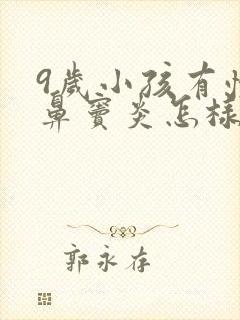 9歲小孩有
鼻竇炎怎樣
郭永存